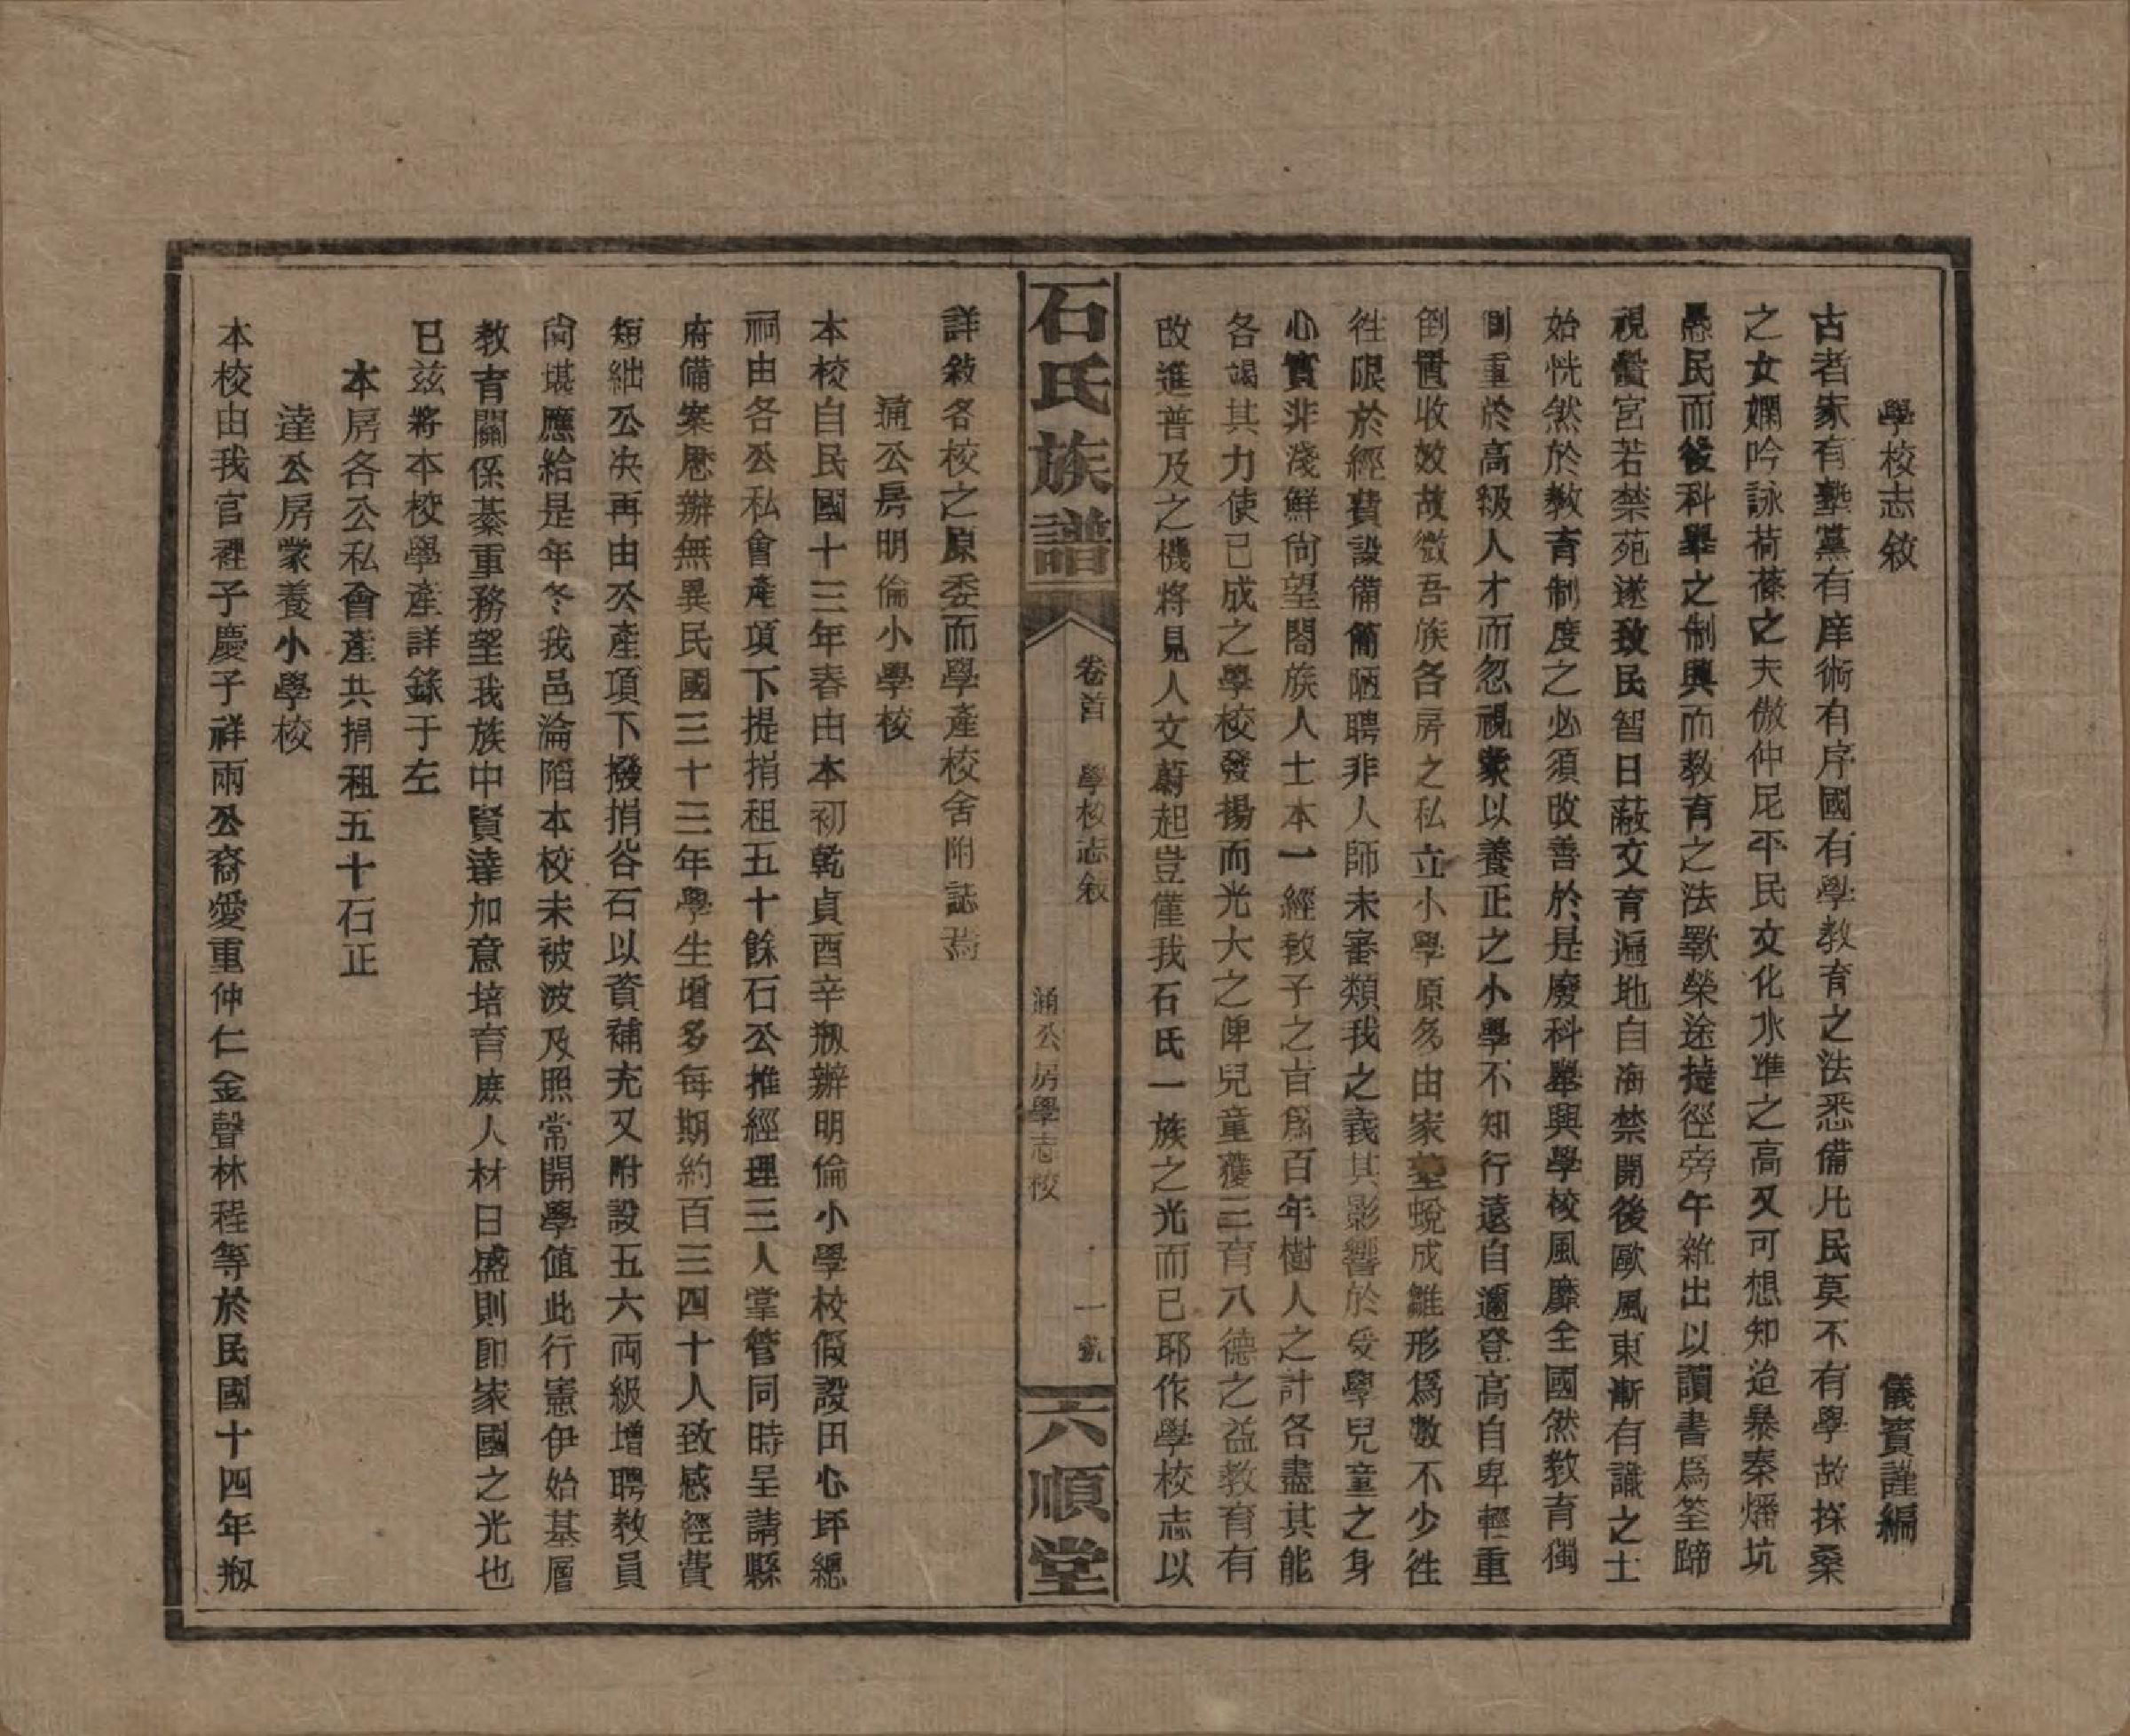 學校志敘　儀賓謹編
古者家有塾黨有庠術有序國有學教育之法悉備凡民莫不有學故採桑
之女嫻吟詠荷蓧之夫傲仲尼平民文化水準之高又可想知迨暴秦燔坑
愚民而後科舉之制興而教育之法斁榮途捷徑旁午雜出以讀書爲筌蹄
視黌宮若禁苑遂致民智日蔽文育遍地自海禁開後歐風東漸有識之士
始恍然於教育制度之必須改善於是廢科舉興學校風靡全國然教育獨
側重於高級人才而忽視蒙以養正之小學不知行遠自邇登高自卑輕重
倒置收效故微吾族各房之私立小學原多由家塾蛻成雛形爲數不少徃
徃限於經費設備簡陋聘非人師未審類我之義其影響於受學兒童之身
心實非淺鮮尙望閤族人士本一經敎子之旨爲百年樹人之計各盡其能
各竭其力使已成之學校發揚而光大之俾兒童獲三育八德之益教育有
改進普及之機將見人文蔚起豈僅我石氏一族之光而已耶作學校志以
石氏族譜　卷首　學校志敘　通公房學志校　一　六順堂
詳敘各校之原委而學產校舍附誌焉
通公房明倫小學校
本校自民國十三年春由本初乾貞酉辛剏辦明倫小學校假設田心坪總
祠由各公私會產項下提捐租五十餘石公推經理三人掌管同時呈請縣
府備案歷辦無異民國三十三年學生增多每期約百三四十人致感經費
短絀公决再由公產項下撥捐谷石以資補充又附設五六両級增聘教員
尙堪應給是年冬我邑淪陷本校未被波及照常開學值此行憲伊始基層
教育關係綦重務望我族中賢達加意培育庶人材日盛則卽家國之光也
已玆將本校學產詳錄于左
本房各公私會產共捐租五十石正
達公房蒙養小學校
本校由我官裡子慶子祥兩公裔愛重仲仁金聲林程等於民國十四年剏